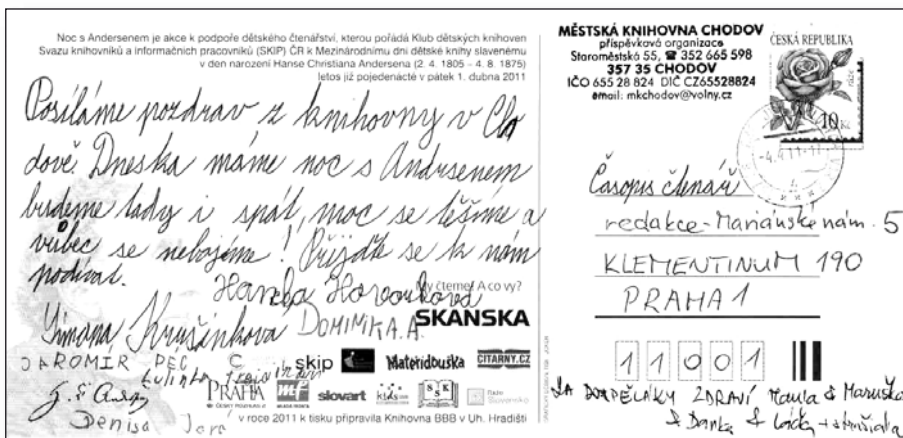 Noc s Andersenem je akce k podpoře dětského čtenářství, kterou pořádá Klub dětských knihoven
Svazu knihovníků a informačních pracovníků (SKIP) ČR k Mezinárodnímu dni dětské knihy slavenému
v den narození Hanse Christiana Andersena (2. 4. 1805 – 4. 8. 1875)
letos již pojedenácté v pátek 1. dubna 2011
Posíláme pozdrav z knihovny v Cho
dově. Dneska máme noc s Andrsenem
budeme tady i spát, moc se těšíme a
vůbec se nebojíme! Přijďte se k nám
podívat.
Hanka
My čteme! A co vy?
SKANSKA
DOMINIKA.A.
JAROMIR PEC
skip
Mateřídouška
CITARNY.CZ
PRAHA
mf
slovart
kids
SK
Denisa Jará
v roce 2011 k tisku připravila Knihovna BBB v Uh. Hradišti
MĚSTSKÁ KNIHOVNA CHODOV
příspěvková organizace
Staroměstská 55, ☎ 352 665 598
357 35 CHODOV
IČO 655 28 824 DIČ CZ65528824
email: mkchodov@volny.cz
ČESKÁ REPUBLIKA
růže
10 Kč
Časopis čtenář
redakce-Mariánské nám. 5
KLEMENTINUM 190
PRAHA 1
1 1 0 0 1
ZA DOSPĚLÁKY ZDRAVÍ & Maruška
& Danka &